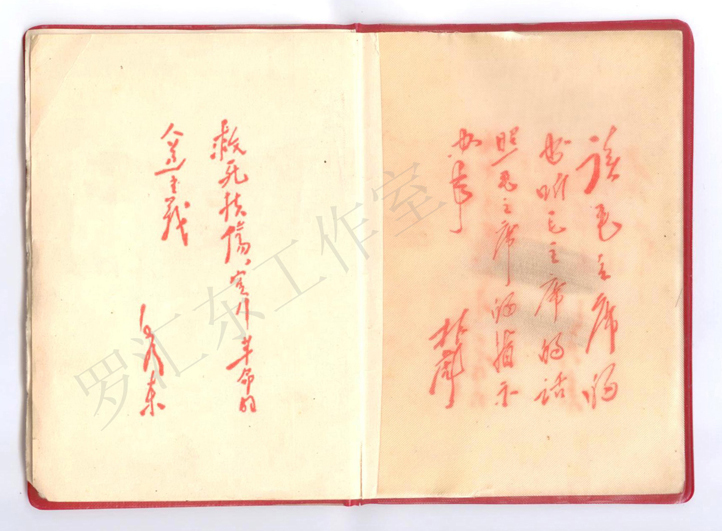 救死扶傷，实行革命的
人道主义
毛泽东
读毛主席的
书听毛主席的话
照毛主席的指示
办事
林彪
罗汇东工作室